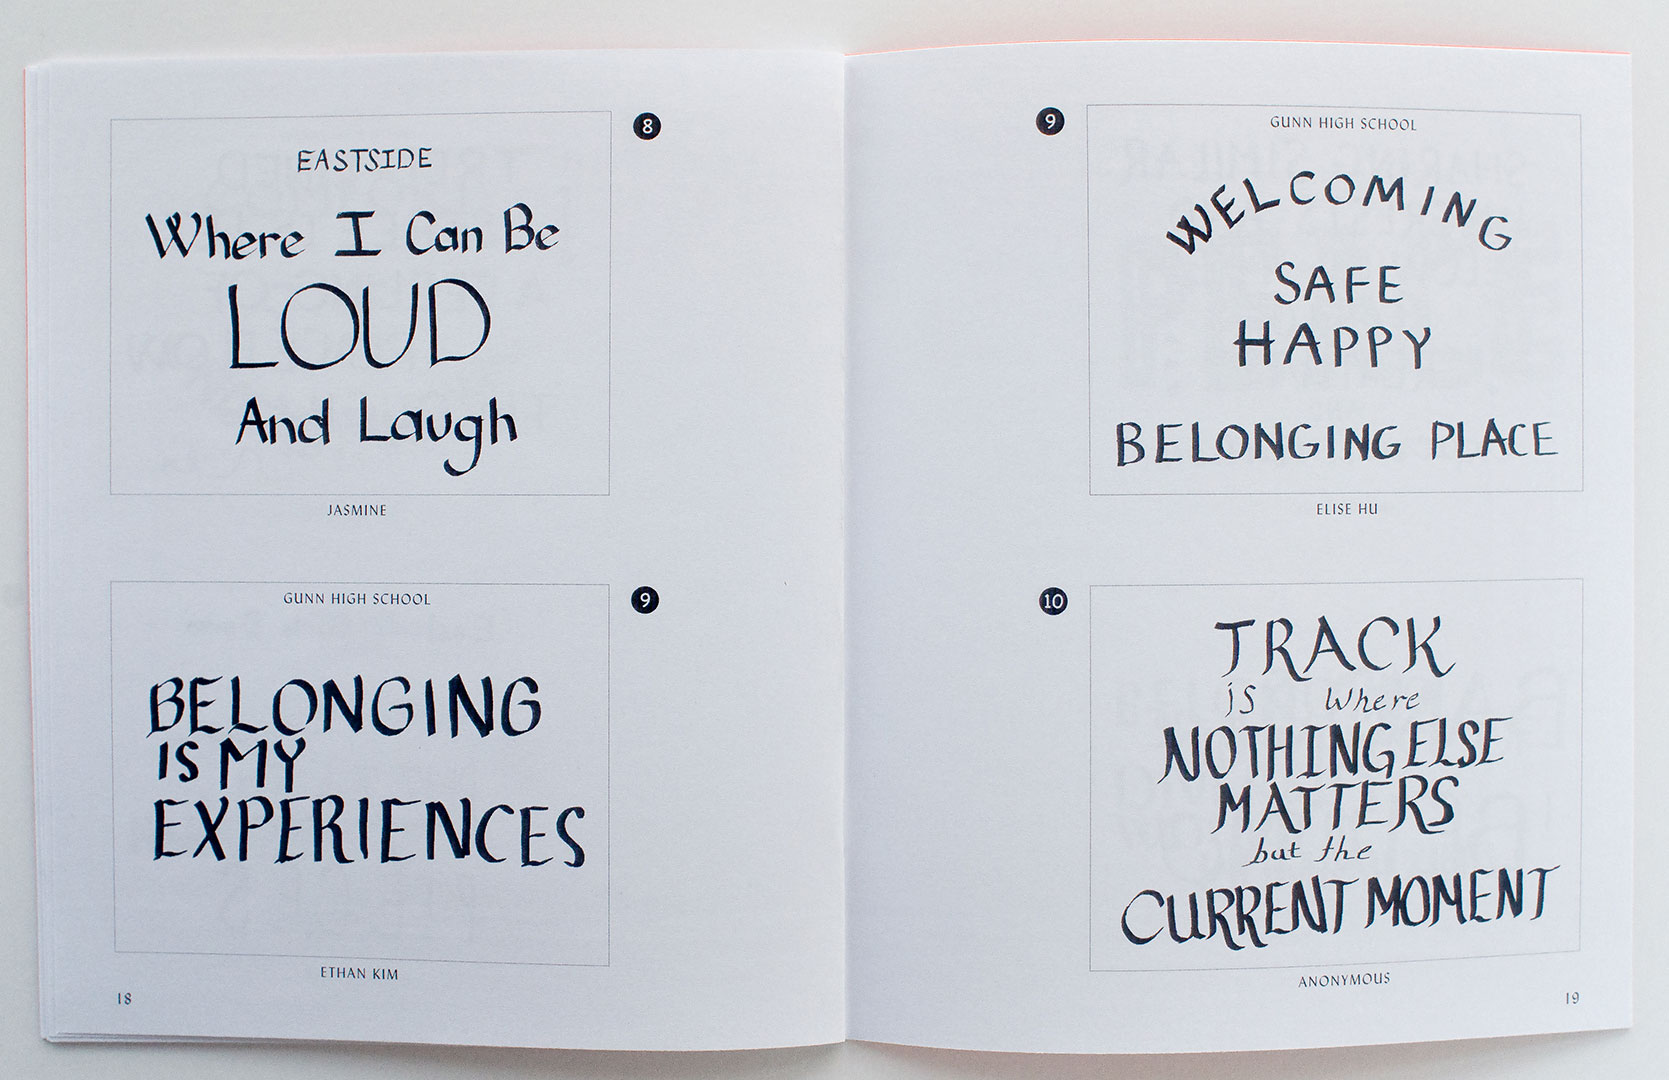 8
EASTSIDE
Where I Can Be
LOUD
And Laugh
JASMINE
9
GUNN HIGH SCHOOL
BELONGING
IS MY
EXPERIENCES
ETHAN KIM
18
9
GUNN HIGH SCHOOL
WELCOMING
SAFE
HAPPY
BELONGING PLACE
ELISE HU
10
TRACK
is where
NOTHING ELSE
MATTERS
but the
CURRENT MOMENT
ANONYMOUS
19